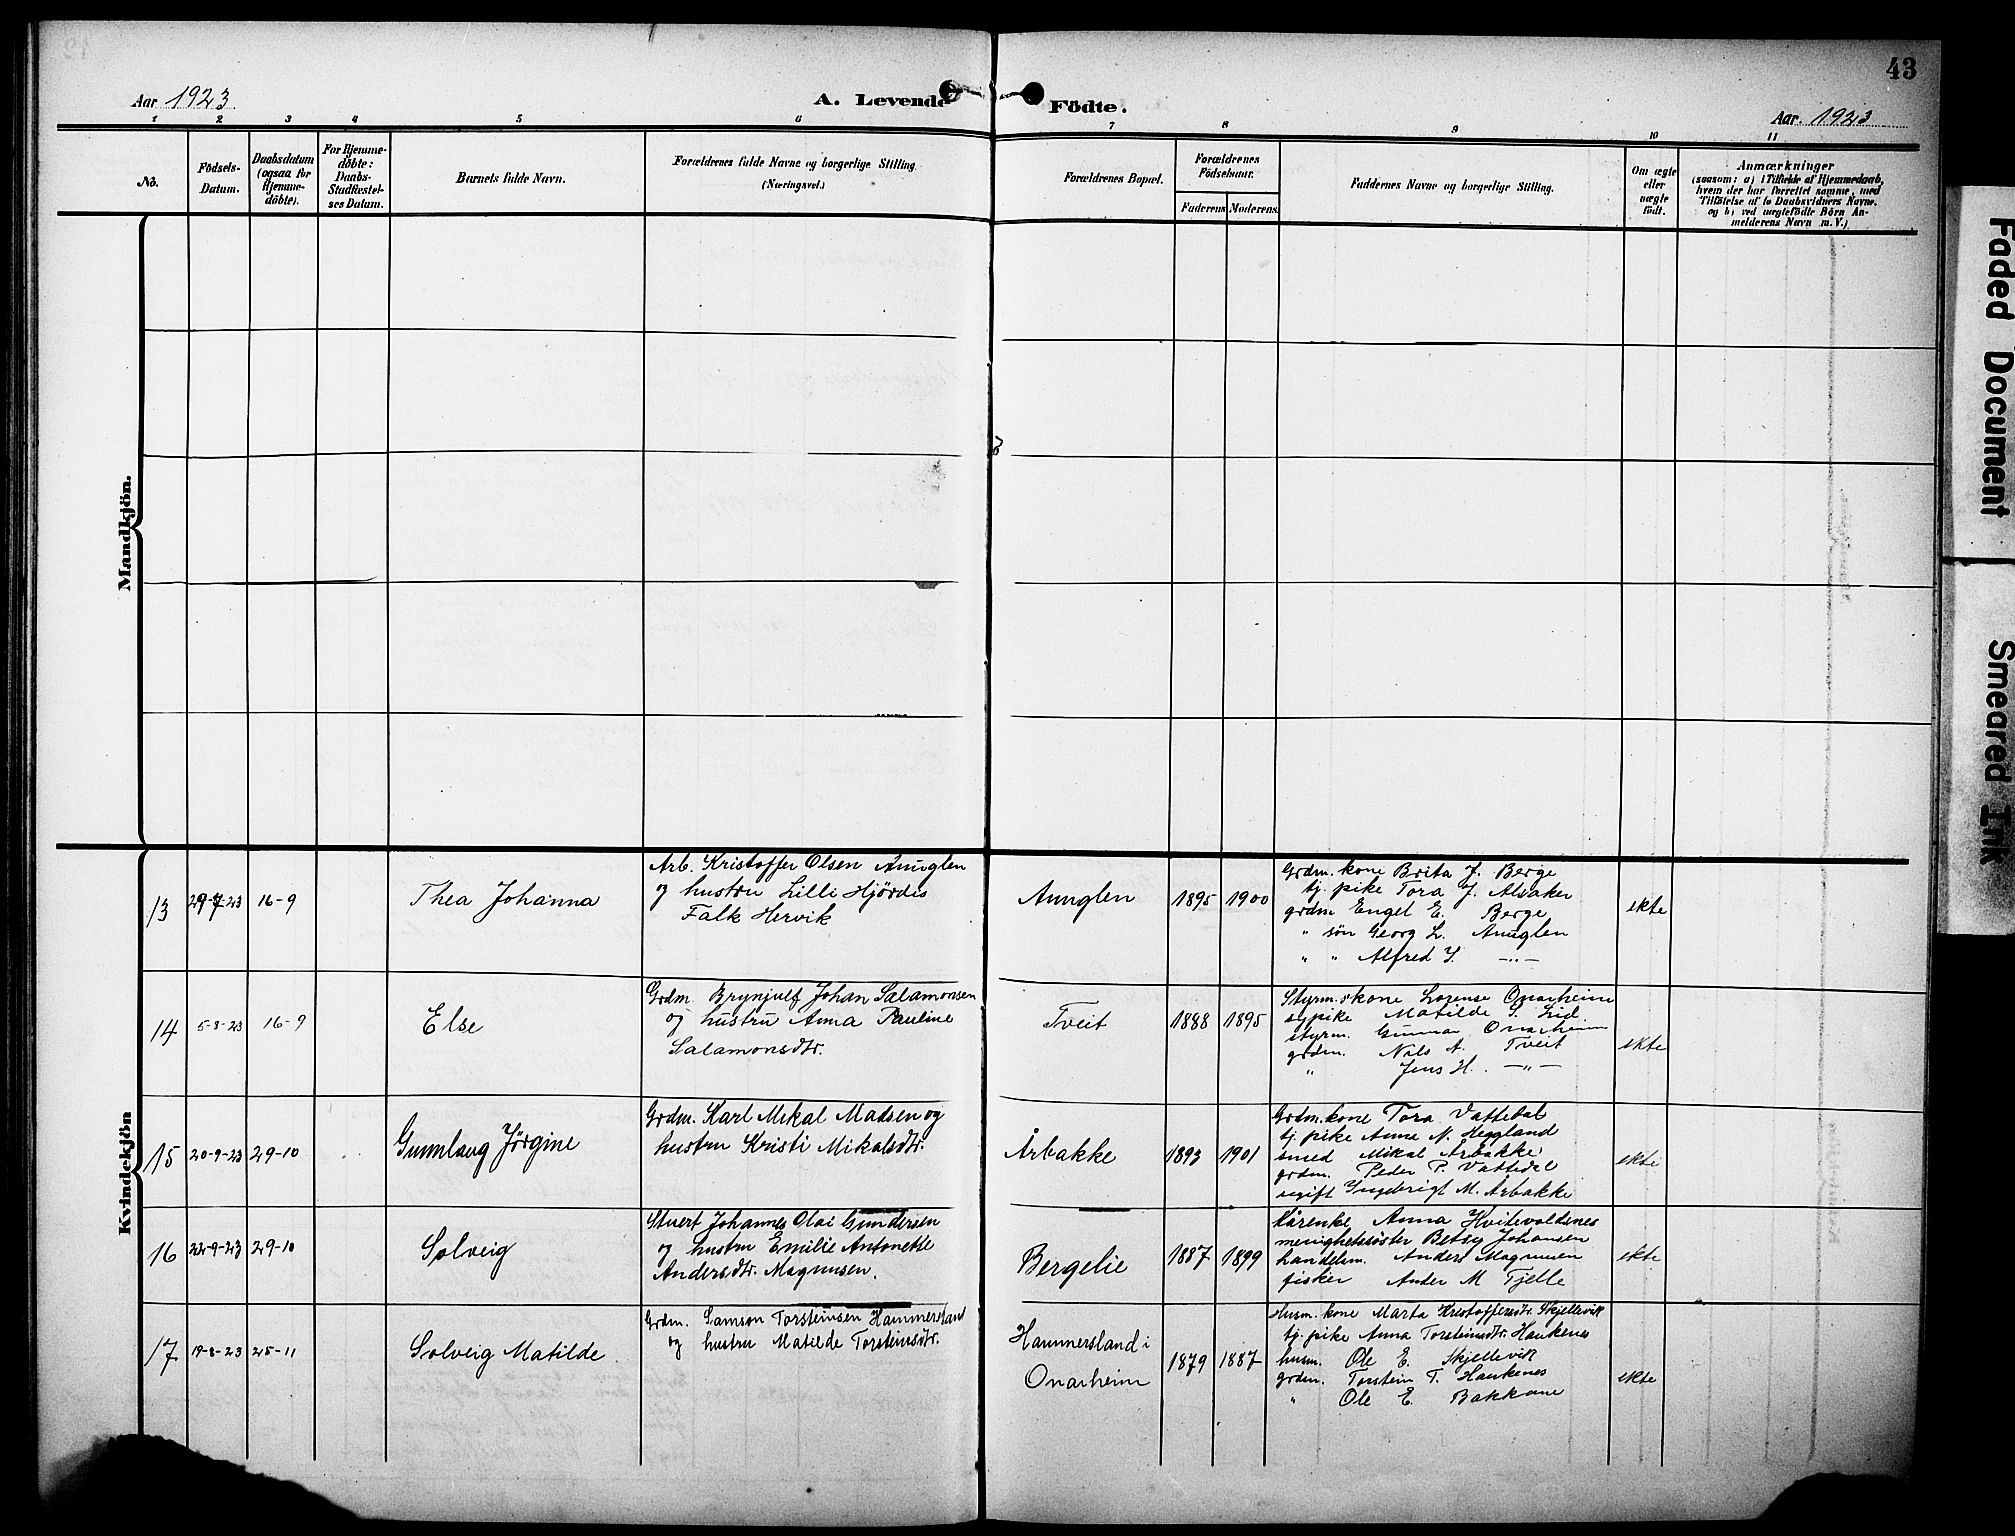 43
Aar 1923
A. Levende Födte.
Aar. 1923
1 2 3 4 5 6 7 8 9 10 11
No.
Födsels-
Datum.
Daabsdatum
(ogsaa for
Hjemme-
döbte).
For Hjemme-
döbte:
Daabs-
Stadfæstel-
ses Datum.
Barnets fulde Navn.
Forældrenes fulde Navne og borgerlige Stilling.
(Næringsvei.)
Forældrenes Bopæl.
Forældrenes
Födselsaar.
Faderens Moderens.
Faddernes Navne og borgerlige Stilling.
Om ægte
eller
uægte
födt.
Anmærkninger
(saasom: a) i Tilfælde af Hjemmedaab,
hvem der har forrettet samme, med
Tilföielse af to Daabsvidners Navne.
og b) ved uægtefödte Börn An-
melderens Navn m. V.)
Mandkjön.
Kvindekjön
13
29-7-23
16-9
Thea Johanna
Arb. Kristoffer Olsen Anuglen
og hustru Lilli Hjördis
Falk Hervik
Anuglen
1895
1900
Grdm. kone Brita J. Berge
tj. pike Tora J. Alsaker
grdm Engel E. Berge
" sön Georg L. Anuglen
" " Alfred J. —"—
ekte
14
5-8-23
16-9
Else
Grdm. Brynjulf Johan Salamonsen
og hustru Anna Pauline
Salamonsdtr.
Tveit
1888
1895
Styrm.skone Lorense Onarheim
sypike Matilde S. Lid.
styrm. Gunnar Onarheim
grdm. Nils A. Tveit
" Jens H. —"—
ekte
15
20-9-23
29-10
Gunnlaug Jørgine
Grdm. Karl Mikal Madsen og
hustru Kristi Mikalsdtr.
Årbakke
1893
1901
Grdm.kone Tora Vattedal
tj. pike Anne N. Heggland
smed Mikal Årbakke
grdm. Peder P. Vattedal
ugift Ingebrigt M. Årbakke
ekte
16
22-9-23
29-10
Solveig
Stuert Johannes Olai Gundersen
og hustru Emilie Antonette
Andersdtr. Magnusen.
Bergelie
1887
1899
Lårenke Anna Hvitevoldsnes
menighetssöster Betsy Johansen
handelsm. Anders Magnusen
fisker Ander M Tjelle
ekte
17
19-8-23
25-11
Solveig Matilde
Grdm. Samson Torsteinsen Hammersland
og hustru Matilde Torsteinsdtr.
Hammersland i
Onarheim
1879
1887
Husm. kone Marta Kristoffersdtr. Skjellevik
tj. pike Anna Torsteinsdtr. Haukenes
husm. Ole E. Skjellevik
grdm. Torstein T. Haukenes
" Ole E. Bakkane
ekte
Faded Document
Smeared Ink